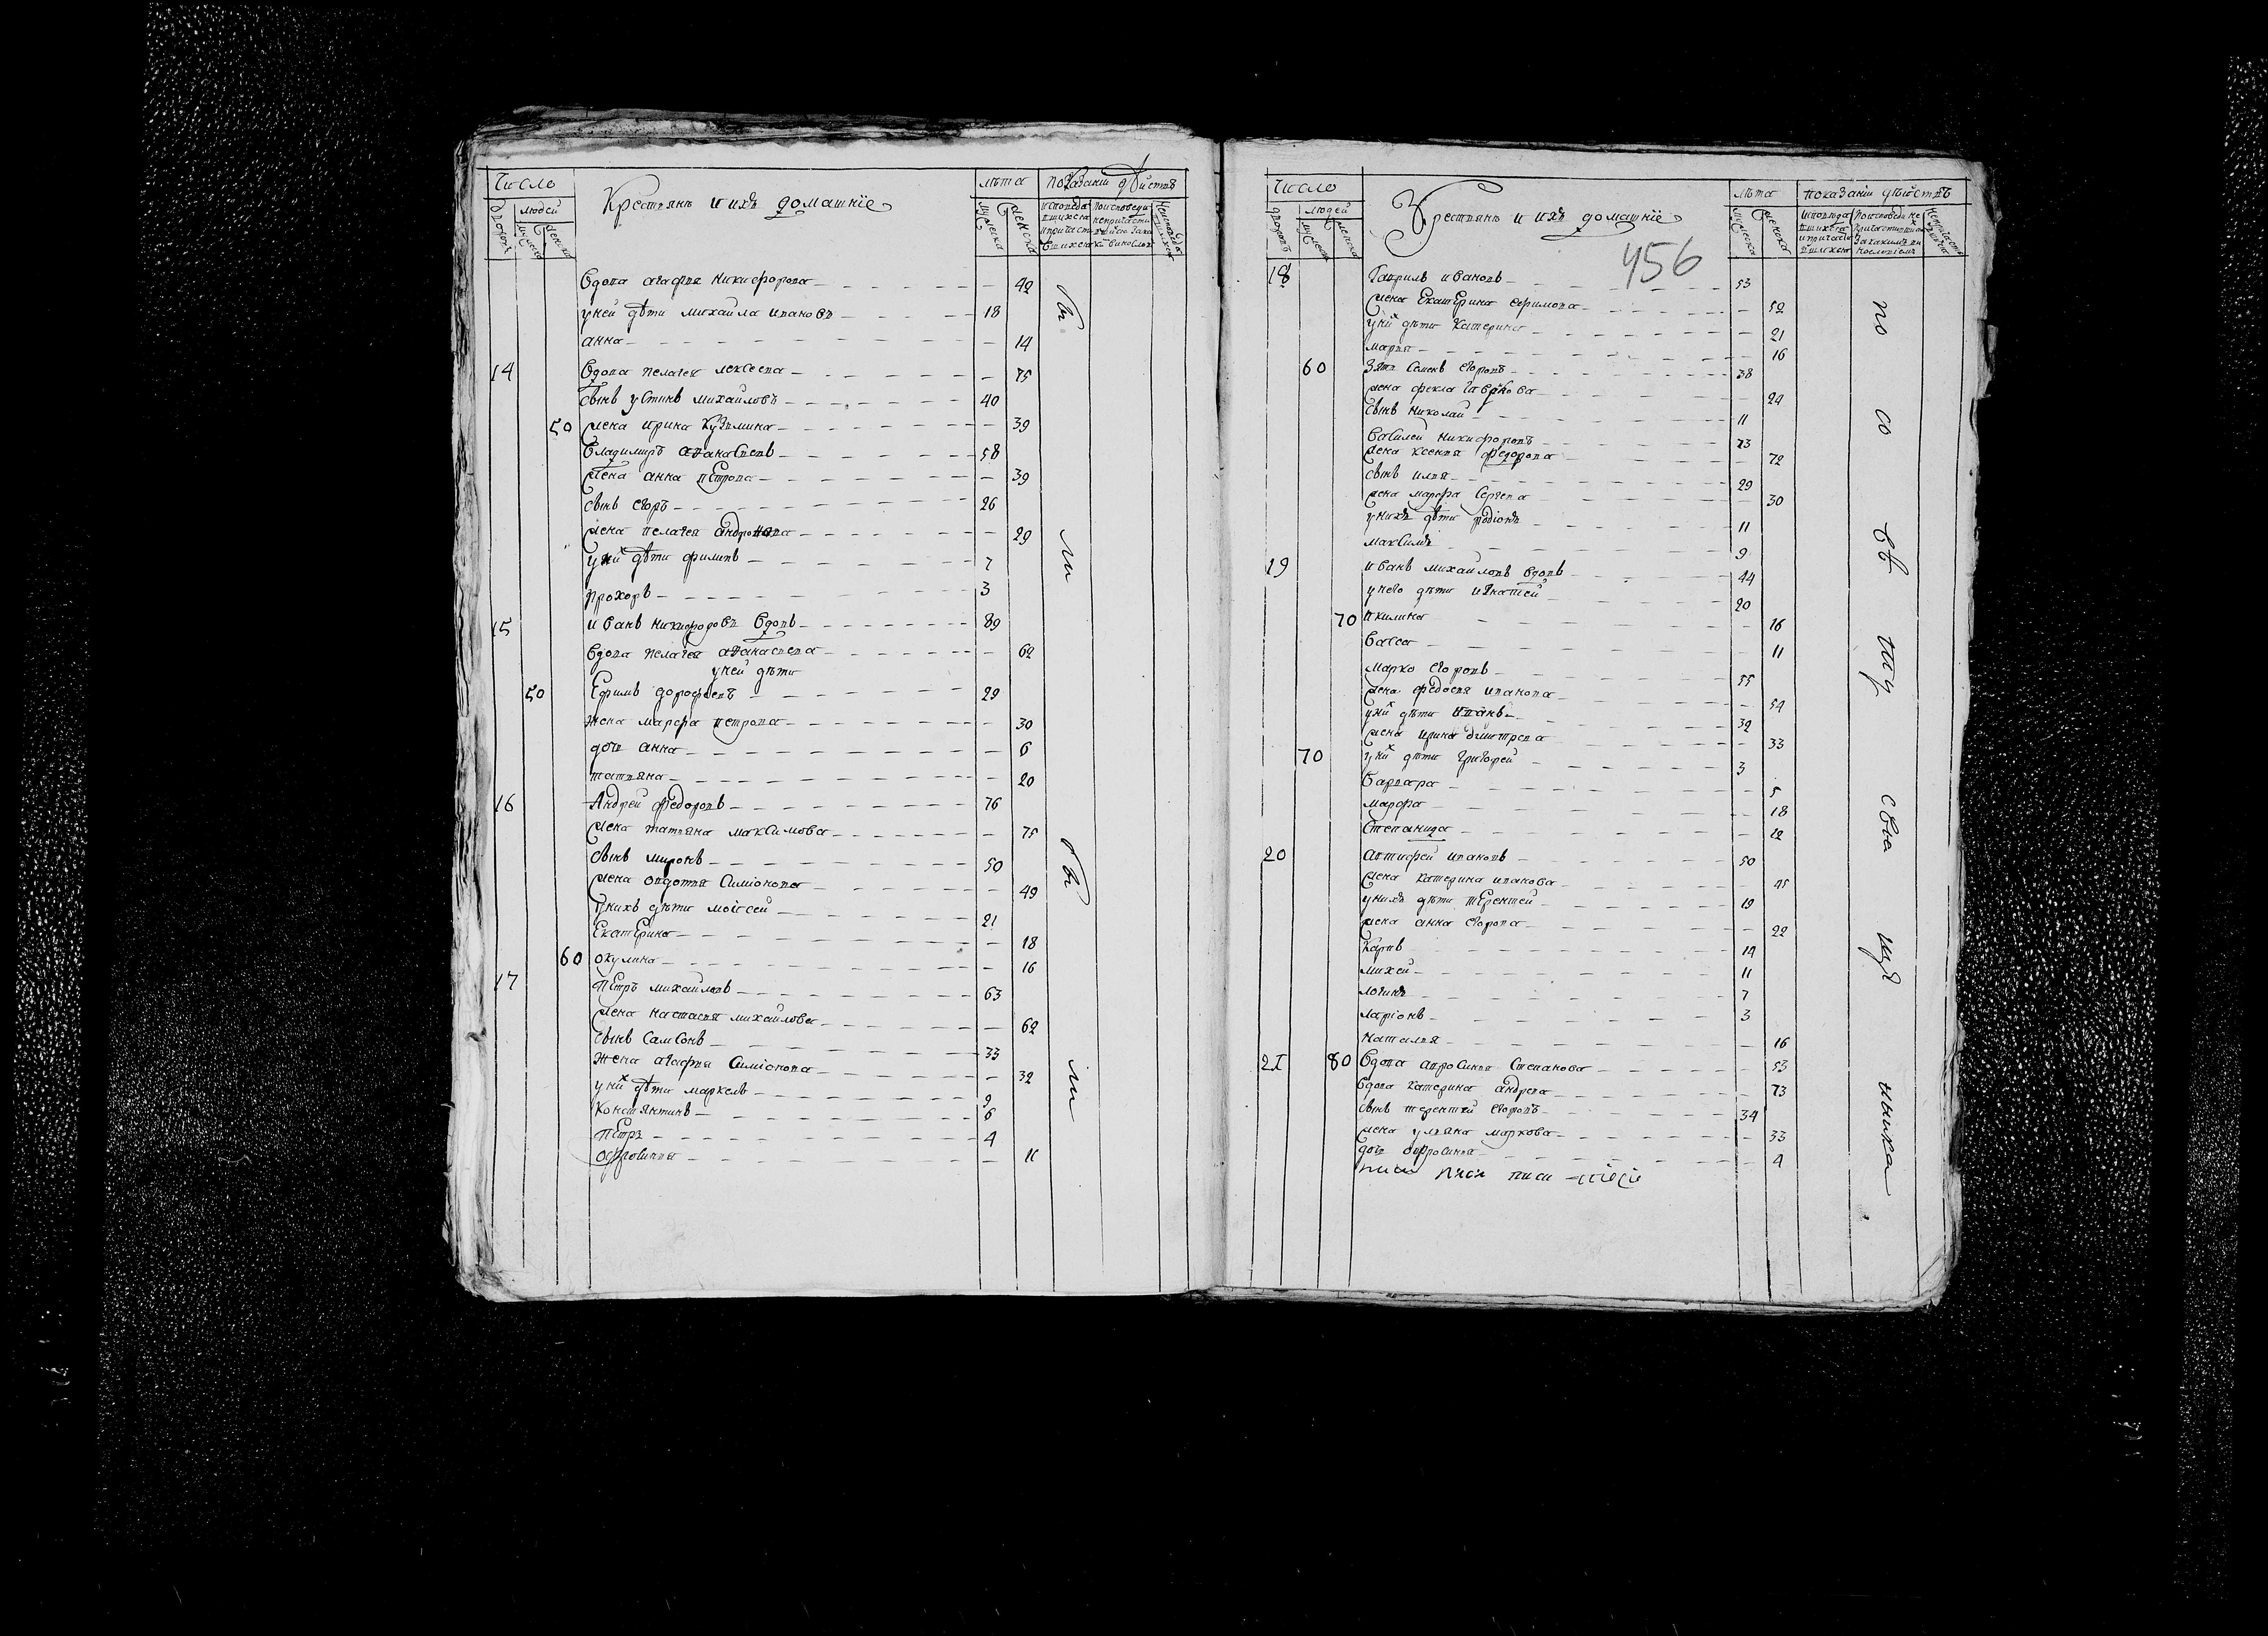 Число
Крестьянъ и ихъ домашнїе
лѣта
показанїи дѣйствъ
людей
вдова агафья никифорова 42
у ней дѣти михайла ивановъ 18
анна 14
14 вдова пелагея лексеева 75
сынъ устинъ михайловъ 40
50 жена ирина кузьмина 39
владимиръ афанасьевъ 58
жена анна петрова 39
сынъ егоръ 26
жена пелагея 29
у них дѣти филипъ 7
прохоръ 3
15 иванъ никифоровъ вдовъ 89
вдова пелагея афанасьева 62
у ней дѣти
50 Ефимъ дорофѣевъ 29
жена марфа петрова 30
дочь анна 6
татьяна 20
16 Андрей федоровъ 76
жена татьяна максимова 75
сынъ миронъ 50
жена овдотья симїонова 49
у нихъ дѣти моисеи 21
Екатерина 18
60 окулина 16
17 Петръ михайловъ 63
жена настасья михайлова 62
сынъ самсонъ 33
жена агафья симїонова 32
у них дѣти маркелъ 9
констянтинъ 6
петръ 4
офросинья 11
были
были
Число
Крестьянъ и ихъ домашнїе
лѣта
показанїи дѣйствъ
людей
456
18 гаврилъ ивановъ 53
жена екатерина ефимова 52
у них дѣти катерина 21
марья 16
60 зять семенъ егоровъ 38
жена фекла 24
сынъ николай 11
василей никифоровъ 73
жена ксенья федорова 72
сынъ илья 29
жена марфа сергева 30
у нихъ дѣти родїонъ 11
максимъ 9
19 иванъ михайловъ вдовъ 44
у него дѣти игнатей 20
70 акилина 16
васса 11
марко егоровъ 55
жена федосья иванова 54
у них дѣти иванъ 32
жена ирина дмитрева 33
70 у них дѣти григорей 3
варвара 5
марфа 18
степанида 12
20 антифей ивановъ 50
жена катерина иванова 45
у нихъ дѣти терентей 19
жена анна егорова 22
карпъ 14
михей 11
логинъ 7
ларїонъ 3
наталья 16
21 80 вдова апросинья степанова 53
вдова катерина андрева 73
сынъ терентей егоровъ 34
жена ульяна маркова 33
дочь офросинья 4
по со ву сея